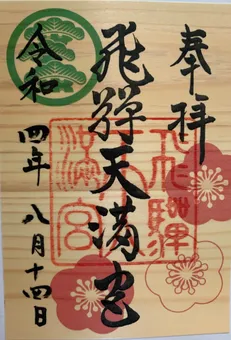 奉拝
飛騨天満宮
飛騨天満宮
令和四年八月十四日